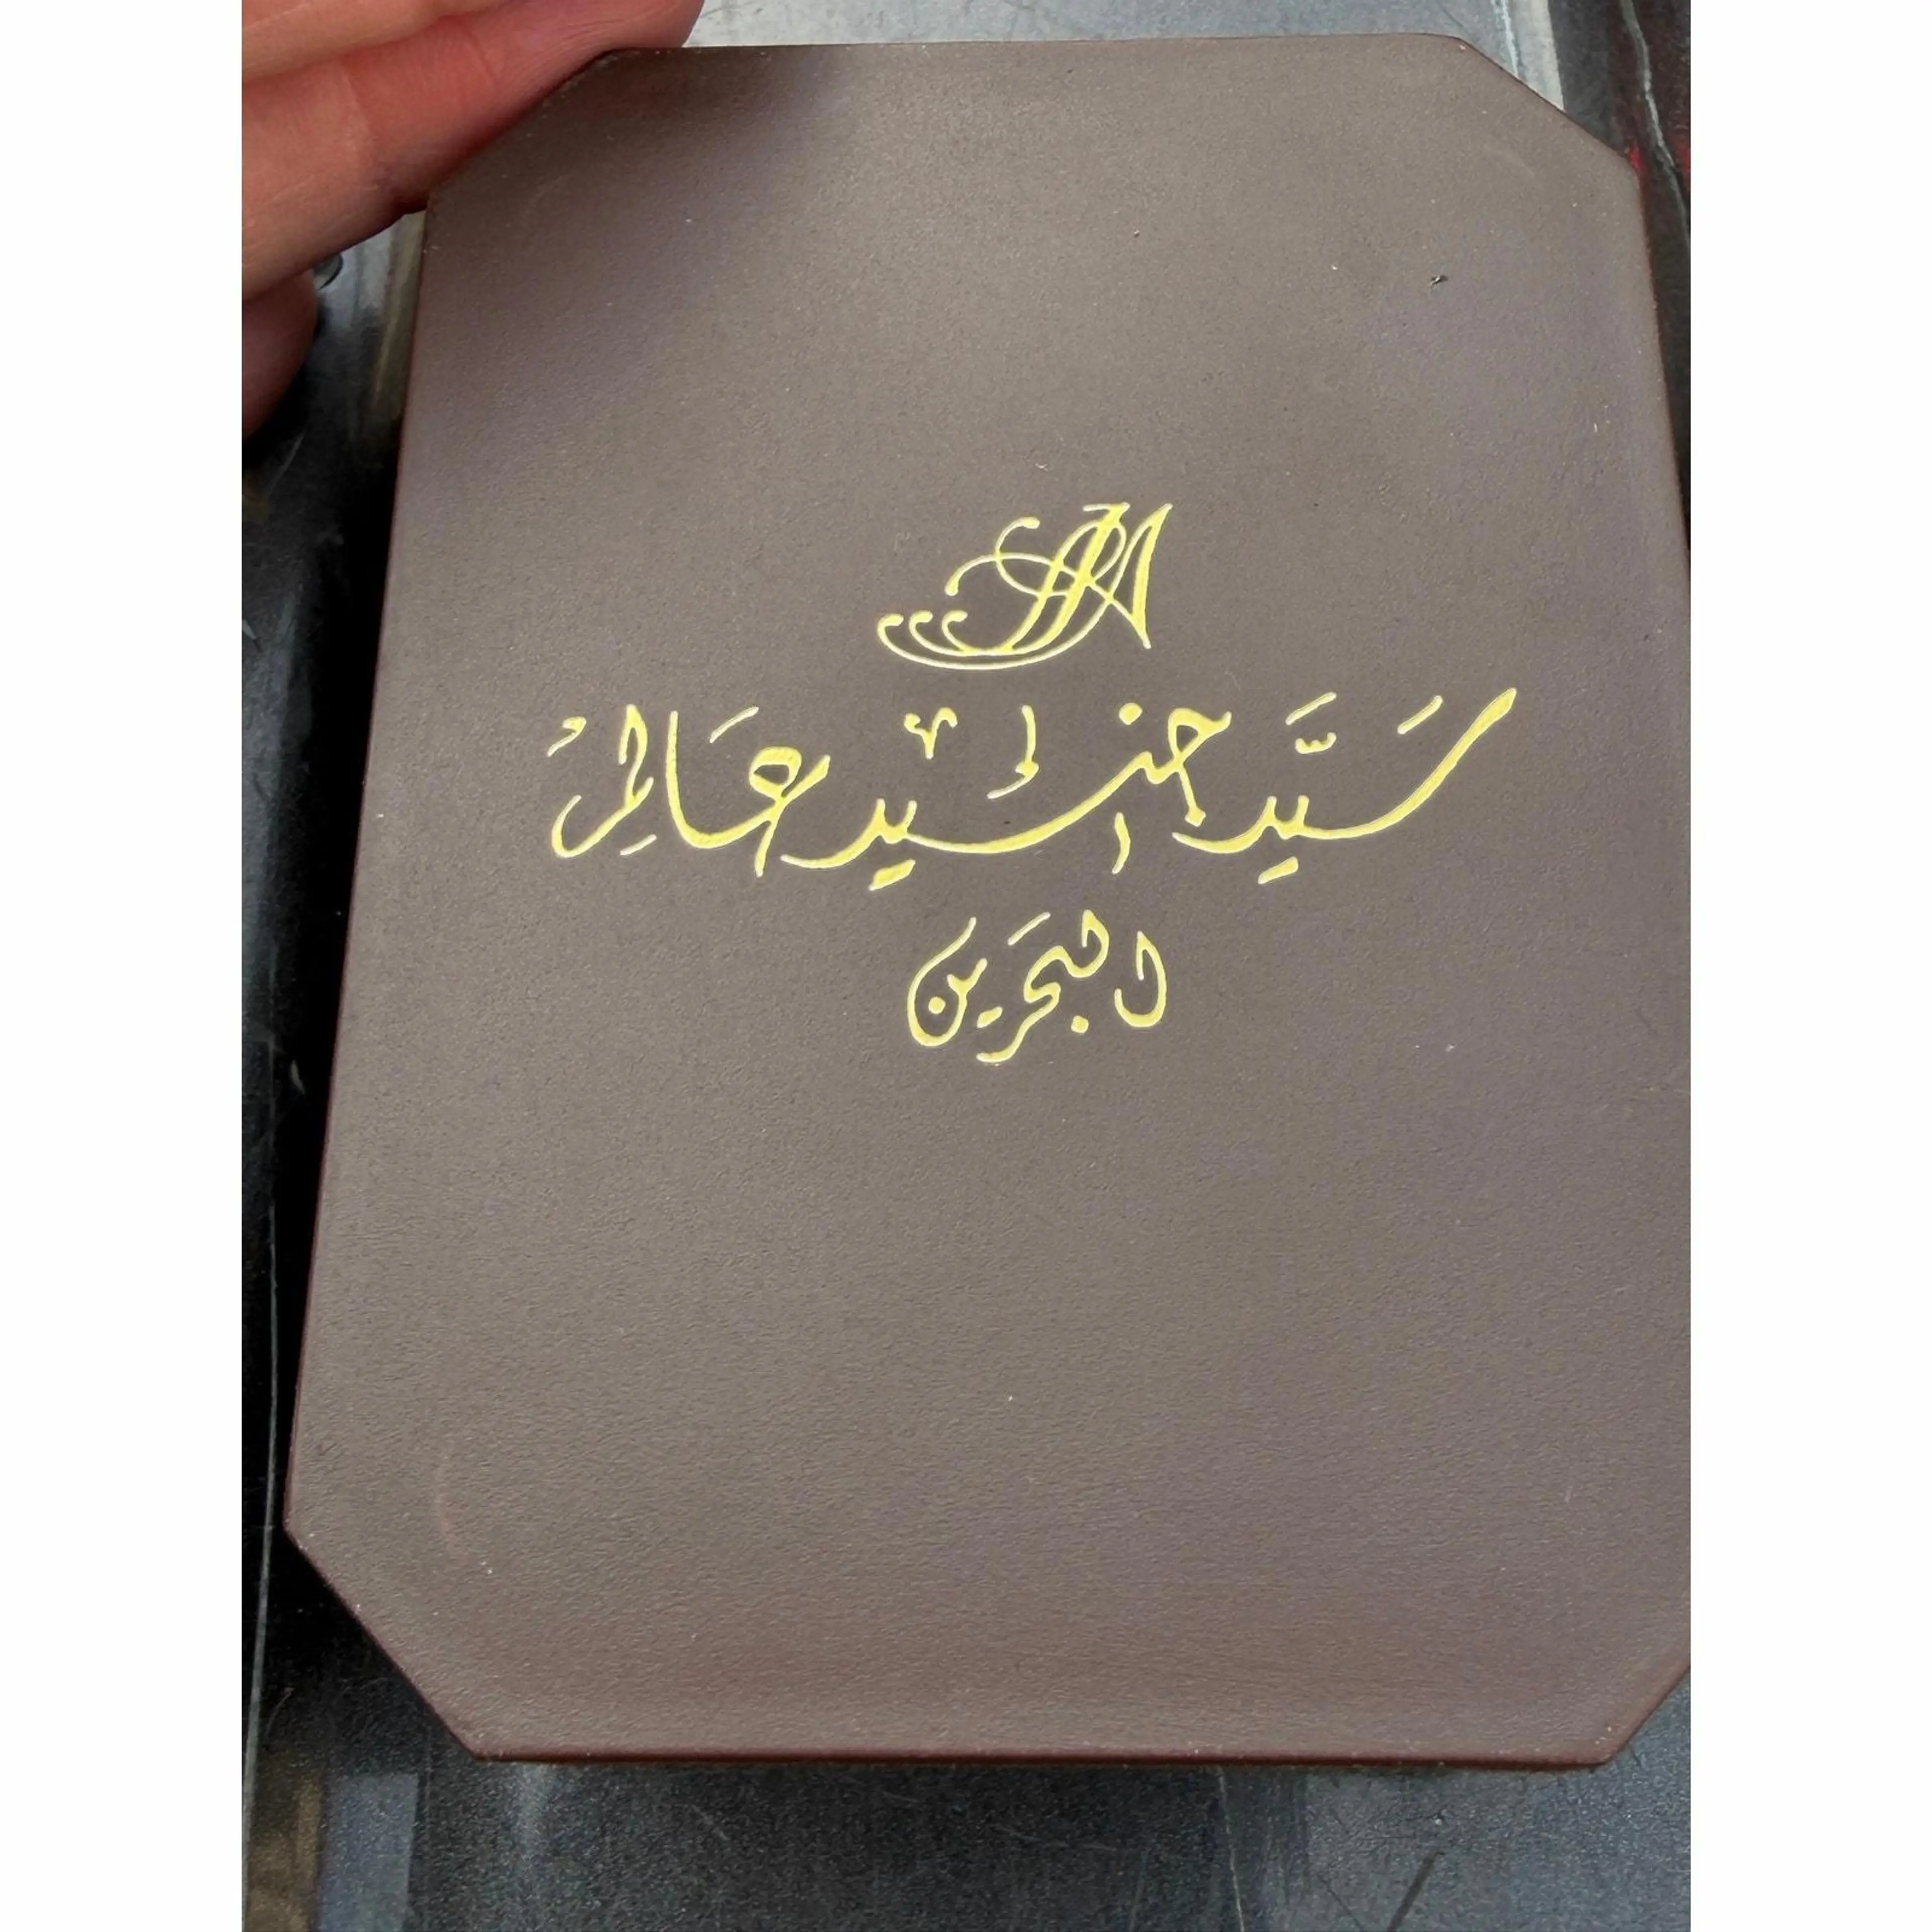 سَيِّد جنيد عالم
البحرين